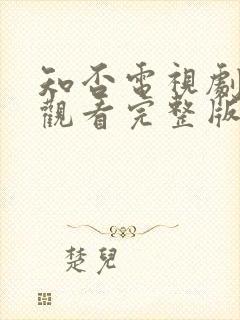 知否電視劇
觀看完整版
楚兒